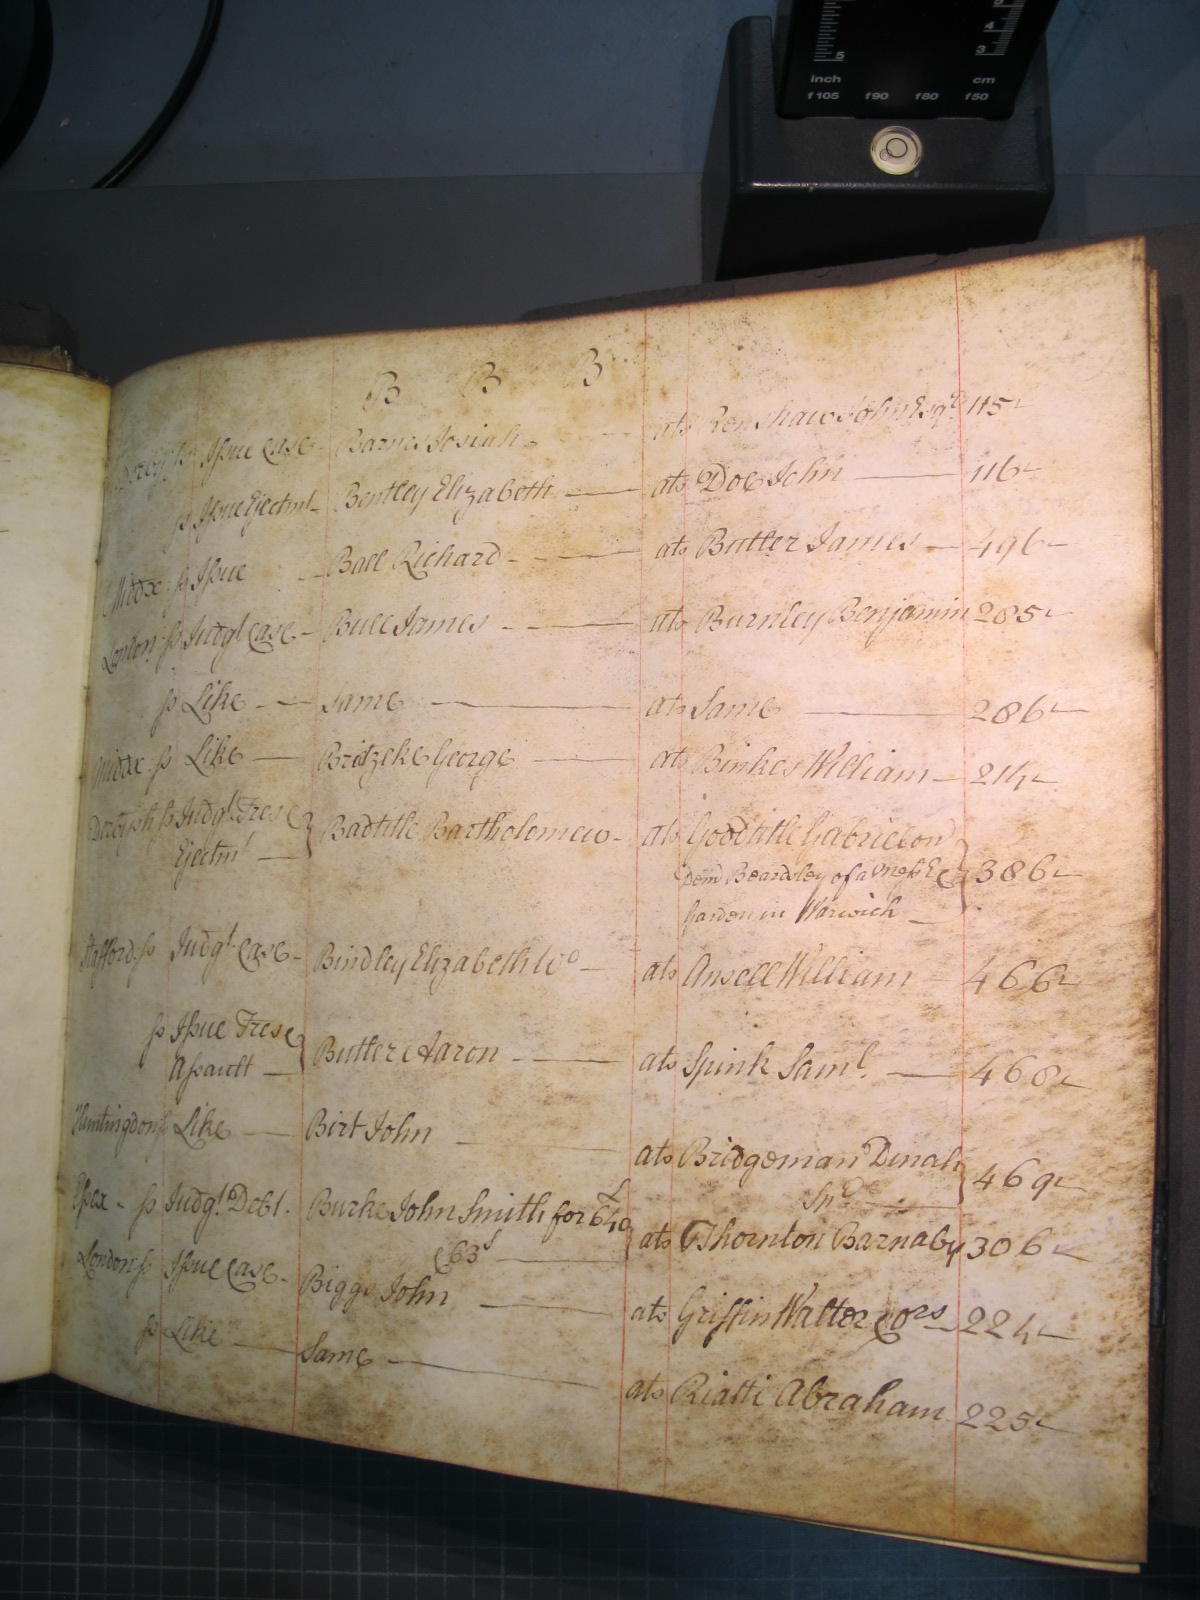 5
4
3
inch cm
f105 f90 f80 f50
B B B
Surry ss Issue Case - Barnes Josiah - ats Renshaw John Esqr 115
ss Issue Ejectmt - Bentley Elizabeth - ats Doe John - 116
Middx ss Issue - Ball Richard - ats Butler James - 496
London ss Judgt Case - Bull James - ats Burnley Benjamin 285
ss Like - Same - ats Same - 286
Middx ss Like - Britzeke George - ats Binkes William - 214
Derbysh ss Judgt Tres & Ejectmt - Badtitle Bartholomew - ats Goodtitle Gabriel on
Demd Beardsley of a Messe & 386
Garden in Warwich -
Stafford ss Judgt Case - Bindley Elizabeth Wo - ats Ansell William - 466
ss Issue Tres & Assault - Butler Aaron - ats Spink Saml. - 468
Huntingdon ss Like - Birt John - ats Bridgeman Dinah
Spr - 469
Essex - ss Judgt Debt - Burke John Smith for £640
& 63s - ats Thornton Barnaby 306
London ss Issue Case - Biggs John - ats Griffin Walter & ors - 224
ss Like - Same - ats Riatti Abraham 225